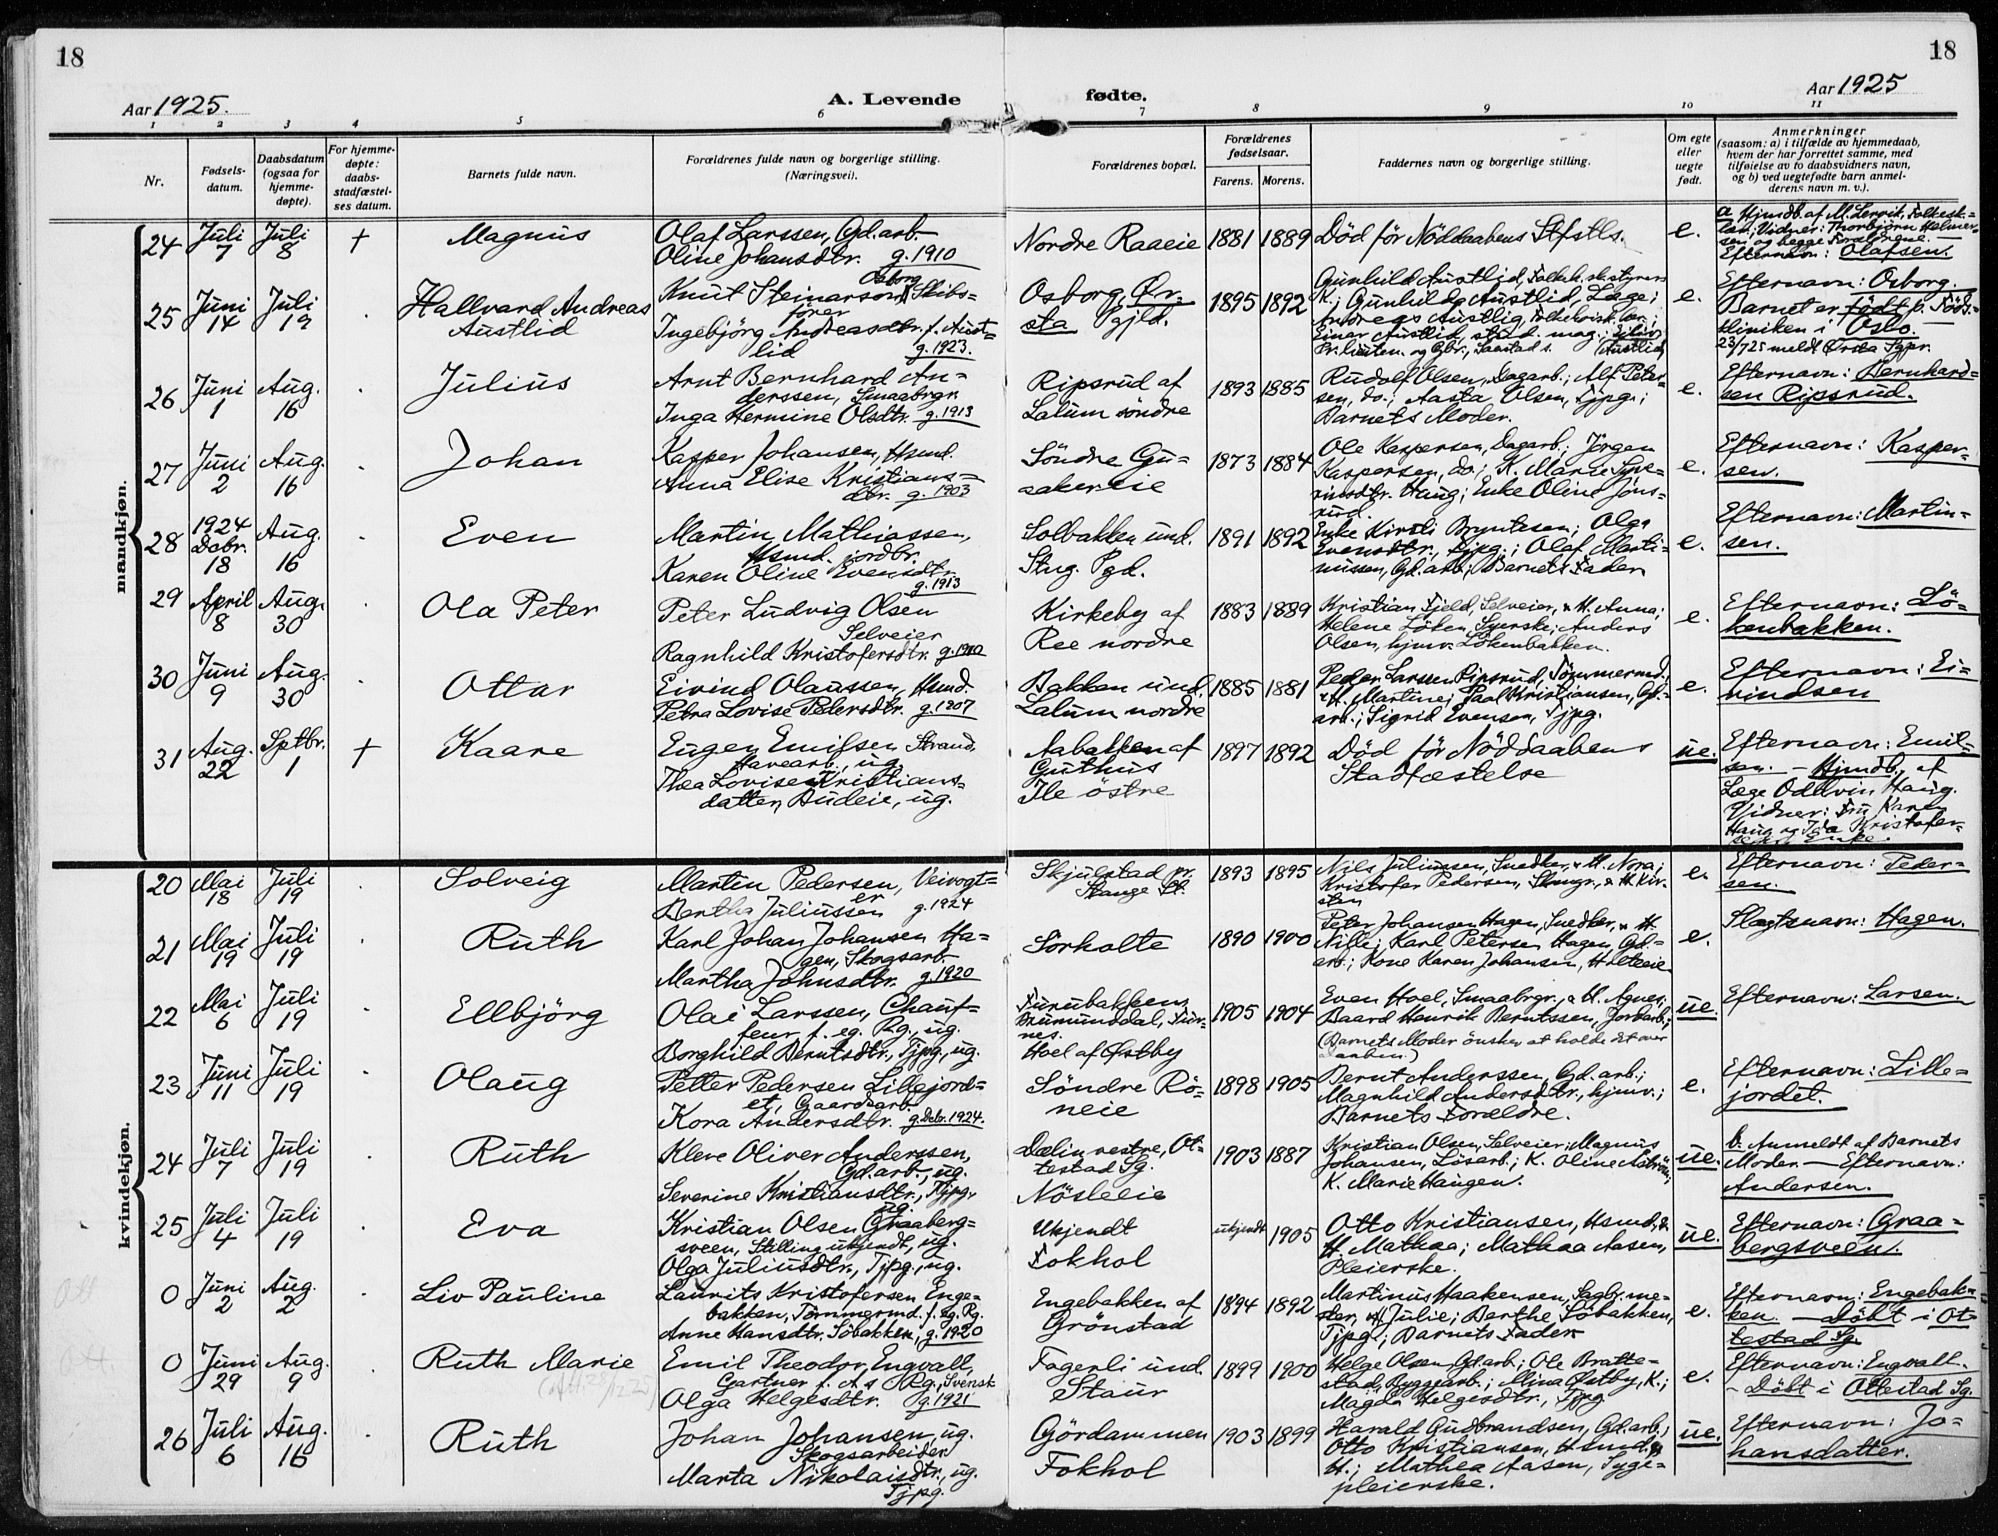 18
18
Aar 1925.
A. Levende
fødte.
Aar 1925
1 2 3 4 5 6 7 8 9 10 11
Nr.
Fødsels-
datum.
Daabsdatum
(ogsaa for
hjemme-
døpte).
For hjemme-
døpte:
daabs-
stadfæstel-
ses datum.
Barnets fulde navn.
Forældrenes fulde navn og borgerlige stilling.
(Næringsvei).
Forældrenes bopæl.
Forældrenes
fødselsaar.
Farens. Morens.
Faddernes navn og borgerlige stilling.
Om egte
eller
uegte
født.
Anmerkninger
(saasom: a) i tilfælde av hjemmedaab,
hvem der har forrettet samme, med
tilføielse av to daabsvidners navn,
og b) ved uegtefødte barn anmel-
derens navn m. v.).
mandkjøn.
24
Juli
7
Juli
8
+
Magnus
Olaf Larssen, Gd.arb.
Oline Johansdtr. g. 1910
Nordre Raaeie
1881
1889
Död för Nöddaabens Stfstls.
e.
a Hjmdb. af M. Lervik, Folkesk.=
lær. Vidner: Thorbjörn Helmer=
sen og begge Forældrene.
Efternavn: Olafsen.
25
Juni
14
Juli
19
.
Hallvard Andreas
Austlid
Knut Steinarson Osborg, Skibs=
förer
Ingebjörg Andreasdtr. f. Aust=
lid g. 1923.
Osborg, Ör.
sta Pgjld.
1895
1892
Gunhild Austlid, Folkehsk.styrers
K.; Gunhild Austlid, Læge;
Andreas Austlig, Folkehsk.lær.;
Einar Austlid, stud. mag.; Eiliv
Pr.liuten. og Gbr., Saastad s. (Austlid)
e.
Efternavn: Osborg.
Barnet er født p. Föds.=
kliniken i Oslo.
23/7 25 meldt Ørsta Sgpr.
26
Juni
1
Aug.
16
.
Julius
Arnt Bernhard An=
derssen, Smaabrgr.
Inga Hermine Olsdtr. g. 1913
Ripsrud af
Lalum söndre
1893
1885
Rudolf Olsen, Dagarb.; Alf Peter=
sen, do.; Aasta Olsen, Tjpg.;
Barnets Moder.
e.
Efternavn: Bernhard=
sen Ripsrud.
27
Juni
2
Aug.
16
.
Johan
Kasper Johansen, Hsmd.
Anna Elise Kristians=
dtr. g. 1903
Söndre Gu=
sakereie
1873
1884
Ole Kaspersen, Dagarb.; Jörgen
Kaspersen, do.; K. Marie Type=
rinsdtr. Haug; Enke Oline Jöns=
rud.
e.
Efternavn: Kasper=
sen.
28
1924
Dcbr.
18
Aug.
16
.
Even
Martin Mathiassen,
Hsmd. jordbr.
Karen Oline Evensdtr.
g. 1913
Solbakken und.
Stng. Pgd.
1891
1892
Enke Kirsti Bryntesen; Olga
Evensdtr., Tjpg.; Olaf Marti=
nussen, Gd.arb.; Barnets Fader.
e.
Efternavn: Martin=
sen.
29
April
8
Aug.
30
.
Ola Peter
Peter Ludvig Olsen
Selveier
Ragnhild Kristofersdtr. g. 1910
Kirkeby af
Ree nordre
1883
1889
Kristian Fjeld, Selveier, & H. Anna;
Helene Löken, Syerske; Anders
Olsen, hjmv. Lökenbakken.
e.
Efternavn: Lö=
kenbakken.
30
Juni
9
Aug.
30
.
Ottar
Eivind Olaussen, Hsmd.
Petra Lovise Pedersdtr. g. 1907
Bakken und.
Lalum nordre
1885
1881
Peder Larssen Ripsrud, Tömmermd.,
& H. Martine; Paal Kristiansen, Gd.=
arb.; Sigrid Evensen, Tjpg.
e.
Efternavn: Ei=
vindsen
31
Aug.
22
Sptbr.
1
+
Kaare
Eugen Emilsen Strand,
Havearb., ug.
Thea Lovise Kristians=
datter, Budeie, ug.
Aabakken af
Guthus
Ile östre
1897
1892
Död för Nöddaabens
Stadfæstelse
ue.
Efternavn: Emil=
sen. — Hjmdb. af
Læge Oddvin Haug.
Vidner: Fru Karen
Haug og Ida Kristofer=
sen, Enke.
kvindekjøn.
20
Mai
18
Juli
19
Solveig
Martin Pedersen, Veivogt=
er
Bertha Juliussen g. 1924
Skjulstad pr.
Stange St.
1893
1895
Nils Juliussen, Snedker, & H. Nora;
Kristofer Pedersen, Skomgr., & H. Kir=
sten
e.
Efternavn: Peder=
sen.
21
Mai
19
Juli
19
.
Ruth
Karl Johan Johansen Ha=
gen, Skogsarb.
Martha Johnsdtr. g. 1920
Sörholte
1890
1900
Peter Johansen Hagen, Snedker, & H.
Nilli; Karl Petersen Hagen, Gd.=
arb.; Kone Karen Johansen, Holteeie
e.
Slægtsnavn: Hagen.
22
Mai
6
Juli
19
.
Ellbjörg
Olai Larssen, Chauf=
feur f. eg. Rg., ug.
Borghild Berntsdtr., Tjpg., ug.
Furubakken,
Brumunddal, Fur=
nes.
Hoel af Østby
1905
1904
Even Hoel, Smaabrgr., & H. Agnes;
Baard Henrik Berntssen, Jordarb.;
(Barnets Moder önsker at holde det over
Daaben.)
ue.
Efternavn: Larsen.
23
Juni
11
Juli
19
.
Olaug
Petter Pedersen Lillejord=
et, Gaardsarb.
Kora Andersdtr. g. Dcbr. 1924.
Söndre Rö=
neie
1898
1905
Bernt Anderssen, Gd.arb.;
Magnhild Andersdtr., hjmv.;
Barnets Forældre.
e.
Efternavn: Lille=
jordet.
24
Juli
7
Juli
19
.
Ruth
Kleve Oliver Anderssen,
Gd.arb., ug.
Severine Kristiansdtr., Tjpg.,
ug.
Dælin vestre, Ot=
testad Sg.
Nösleeie
1903
1887
Kristian Olsen, Selveier; Magnus
Johansen, Lösarb.; K. Oline Aaström;
K. Marie Haugen.
ue.
b. Anmeldt af Barnets
Moder. — Efternavn:
Andersen.
25
Juli
4
Juli
19
.
Eva
Kristian Olsen Graaberg=
sveen, Stilling ukjendt, ug.
Olga Juliusdtr., Tjpg., ug.
Ukjendt
Fokhol
ukjendt
1905
Otto Kristiansen, Hsmd., &
H. Mathea; Mathea Aasen,
Pleierske.
ue.
Efternavn: Graa=
bergsveen.
Ott
0
Juni
2
Aug.
2
.
Liv Pauline
Laurits Kristofersen Enge=
bakken, Tömmermd. f. eg. Rg.
Anne Hansdtr. Söbakken, g. 1920
Engebakken af
Grönstad
1894
1892
Martinus Haakensen, Sagbr.me=
der, & H. Julie; Berthe Söbakken,
Tjpg.; Barnets Fader.
e.
Efternavn: Engebak=
ken. — Döbt i Ot=
testad Sg.
Ott.
0
Juni
29
Aug.
9
.
Ruth Marie
Emil Theodor Engvall,
Gartner f. A s Rg., Svensk
Olga Helgesdtr. g. 1921
Fagerli und.
Staur
1899
1900
Helge Olsen, Gd.arb.; Ole Bratte=
stad, Byggearb.; Mina Østby, K.;
Magda Helgesdtr., Tjpg.
e.
Efternavn: Engvall.
— Döbt i Ottestad Sg.
26
Juli
6
Aug.
16
.
Ruth
Johan Johansen, ug.
Skogsarbeider
Marta Nikolaisdtr., ug.
Tjpg.
Gördammen
Fokhol
1903
1899
Harald Gudbrandsen, Gd.arb.;
Otto Kristiansen, Hsmd., &
H.; Mathea Aasen, Syge=
pleierske.
ue.
Efternavn: Jo=
hansdatter.